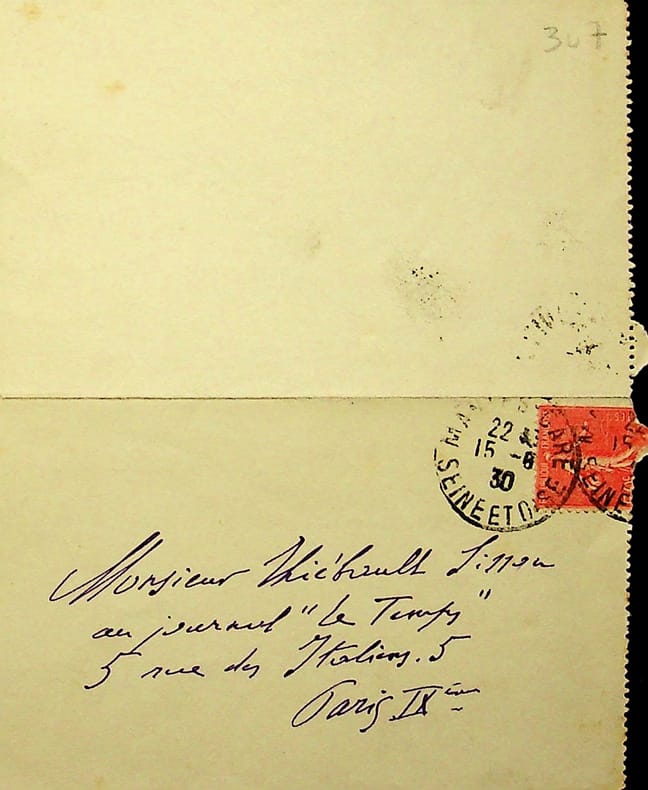 307
22
15 -6
30
SEINE ET O
Monsieur Thiébault Sisson
au journal "Le Temps"
5 rue des Italiens. 5
Paris IXème